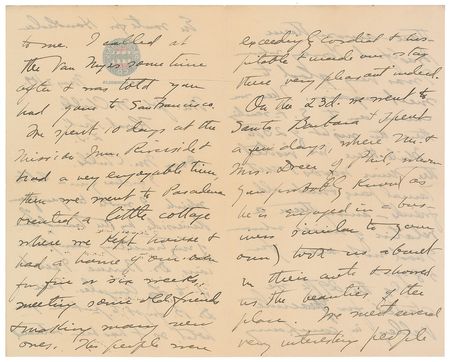 to me. I called at
the Van Nuys some time
after & was told you
had gone to San Francisco.
We spent 10 days at the
Mission Inn, Riverside &
had a very enjoyable time,
then we went to Pasadena
& rented a little cottage
where we "kept house" &
had a "home of our own"
for five or six weeks,
meeting some old friends
& making many new
ones. The people were
exceedingly cordial & hos-
pitable & made our stay
there very pleasant indeed.
On the 23d. we went to
Santa Barbara & spent
a few days, where Mr. &
Mrs. of Phil. whom
you probably know (as
he is engaged in a bus-
iness similar to your
own) took us about
in their auto & showed
us the beauties of the
place. We met several
very interesting people